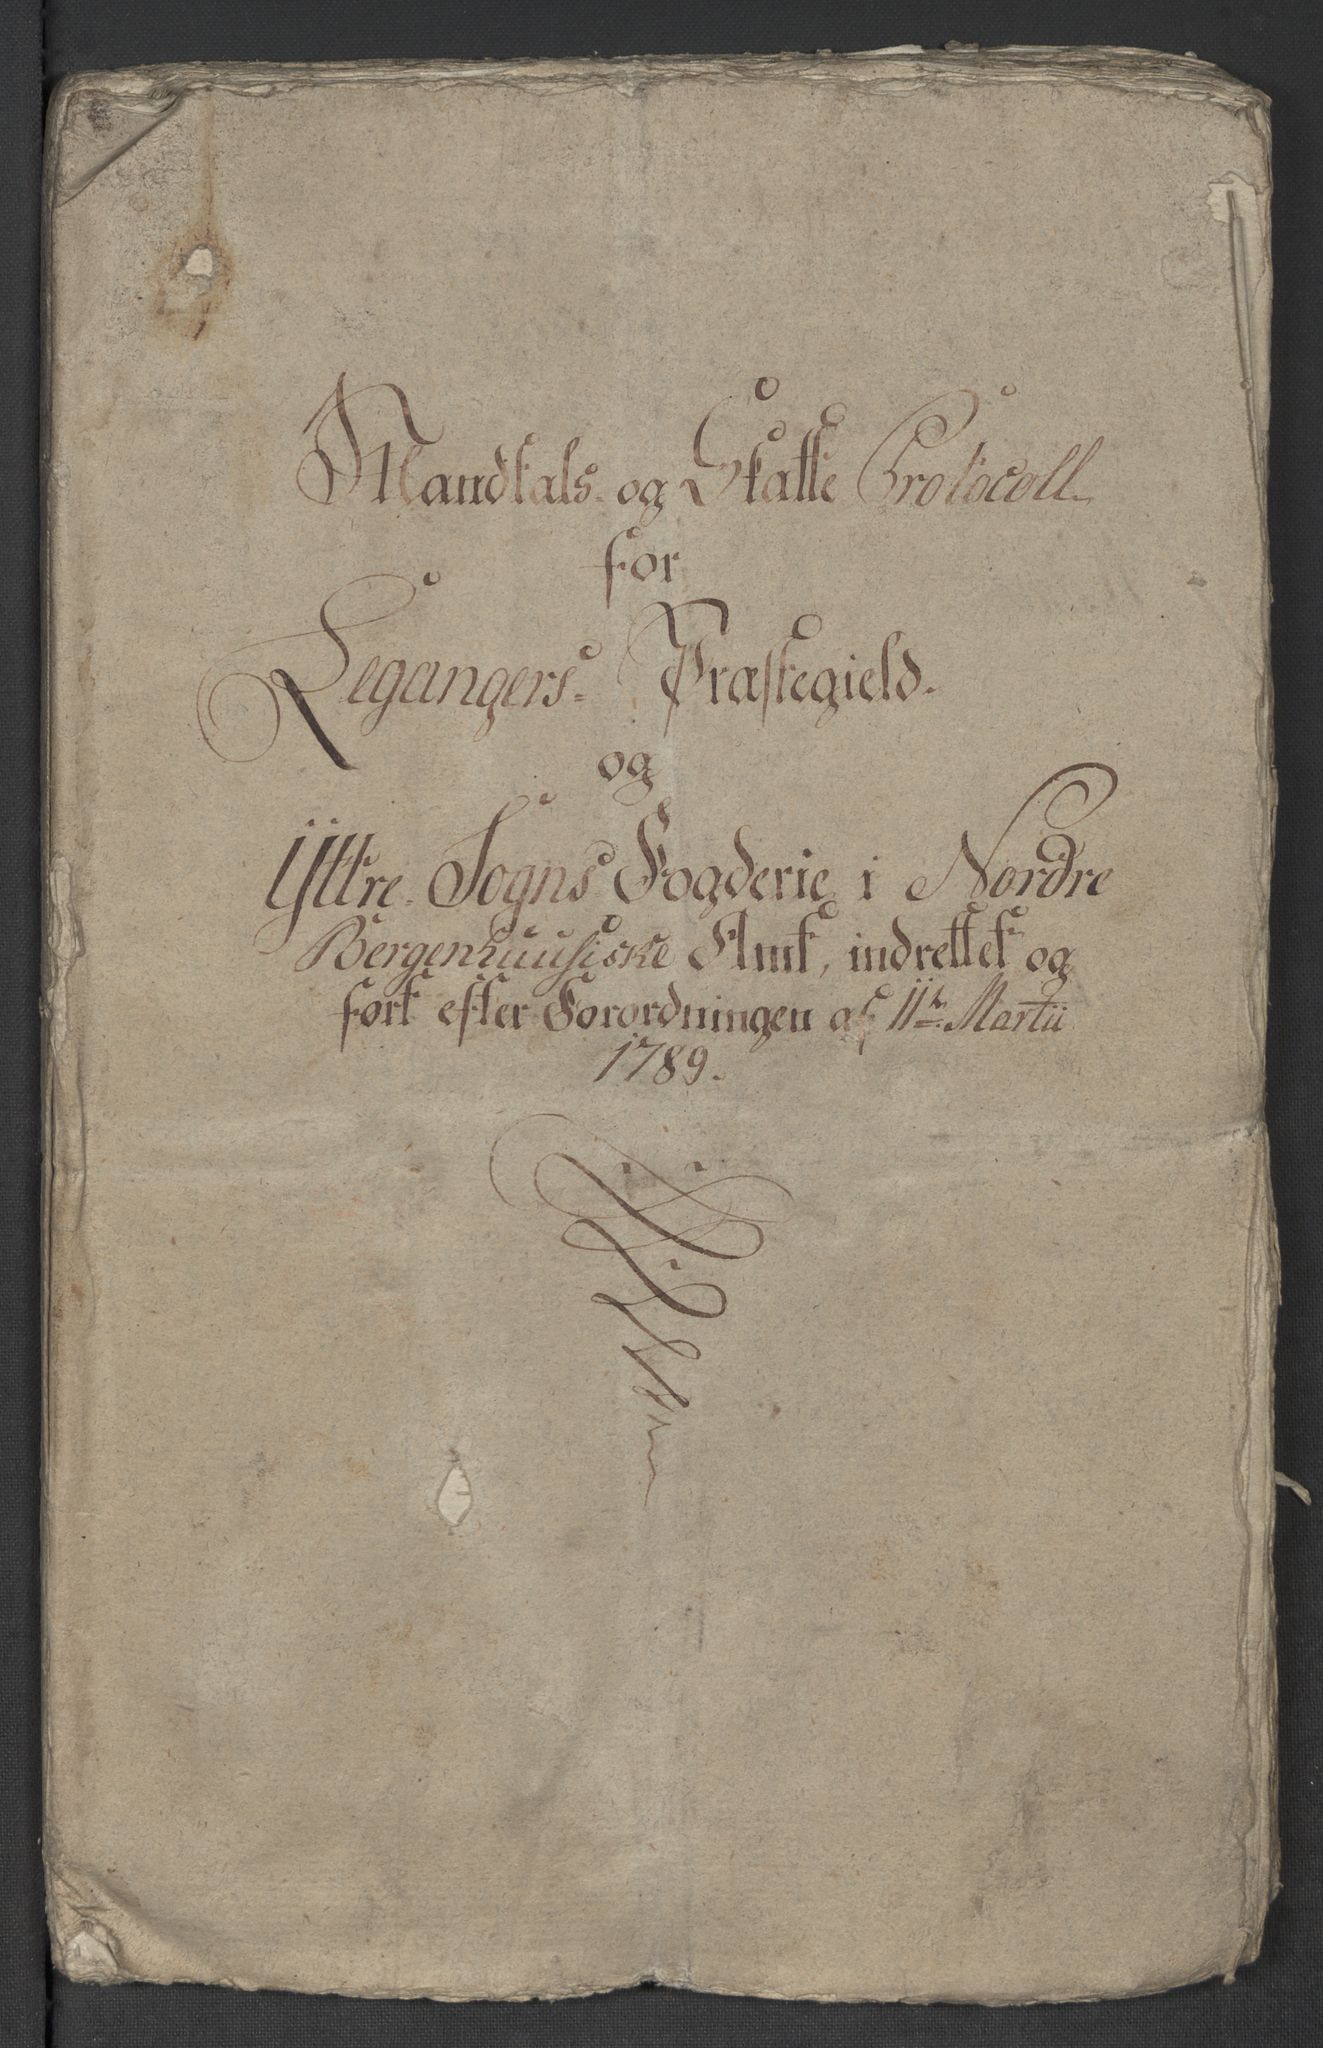 Mandtals og Skatte Protocoll
for
Legangers Præstegield.
og
Yttre Sogns Fogderie i Nordre
Bergenhuusiske Amt, indrettet og
fort efter Forordningen af 11te Martii
1789.